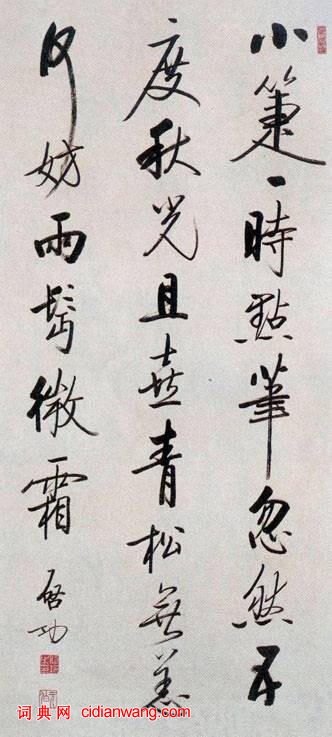 小箑一時點筆忽然五
度秋光且喜青松無恙
何妨兩鬢微霜
啓功
词典网 cidianwang.com